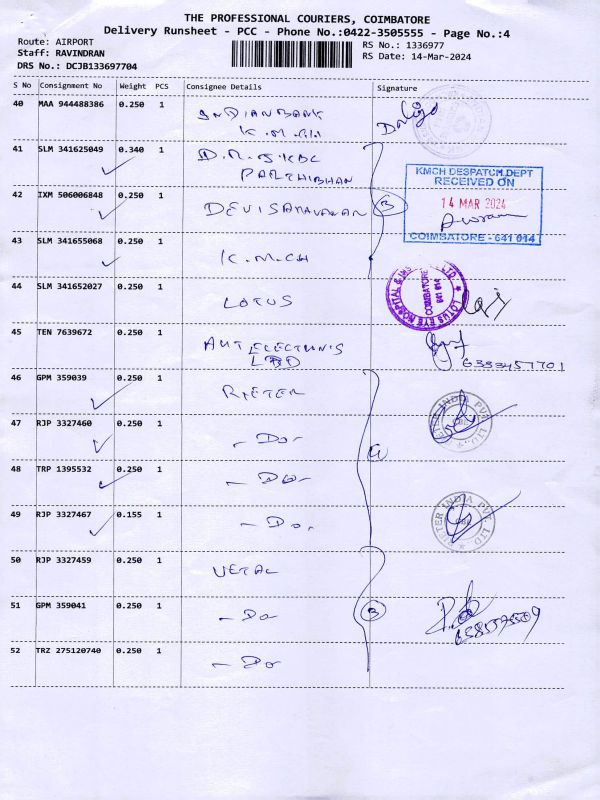 THE PROFESSIONAL COURIERS, COIMBATORE
Delivery Runsheet - PCC - Phone No.:0422-3505555 - Page No.:4
Route: AIRPORT
Staff: RAVINDRAN
DRS No.: DCJB133697704
RS No.: 1336977
RS Date: 14-Mar-2024
S No Consignment No Weight PCS Consignee Details Signature
40 MAA 944488386 0.250 1 INDIAN BANK
K.M.CH
41 SLM 341625049 0.340 1
PARTHIBHAN
KMCH DESPATCH DEPT
RECEIVED ON
14 MAR 2024
COIMBATORE - 641 014
42 IXM 506006848 0.250 1 B
43 SLM 341655068 0.250 1 K.M.CH
44 SLM 341652027 0.250 1 LOTUS
LOTUS EYE HOSPITAL & INS
COIMBATORE
641 014
45 TEN 7639672 0.250 1
6383457701
46 GPM 359039 0.250 1 RIETER
47 RJP 3327460 0.250 1 - Do -
RIETER INDIA PVT. LTD.
48 TRP 1395532 0.250 1 - Do -
49 RJP 3327467 0.155 1 - Do -
RIETER INDIA PVT. LTD.
50 RJP 3327459 0.250 1
51 GPM 359041 0.250 1 - Do B
52 TRZ 275120740 0.250 1 - Do